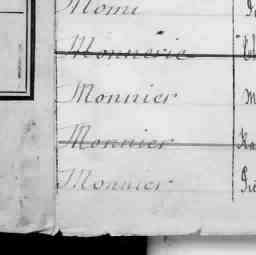 Momi
Monnerie
Monnier M
Monnier Ka
Monnier